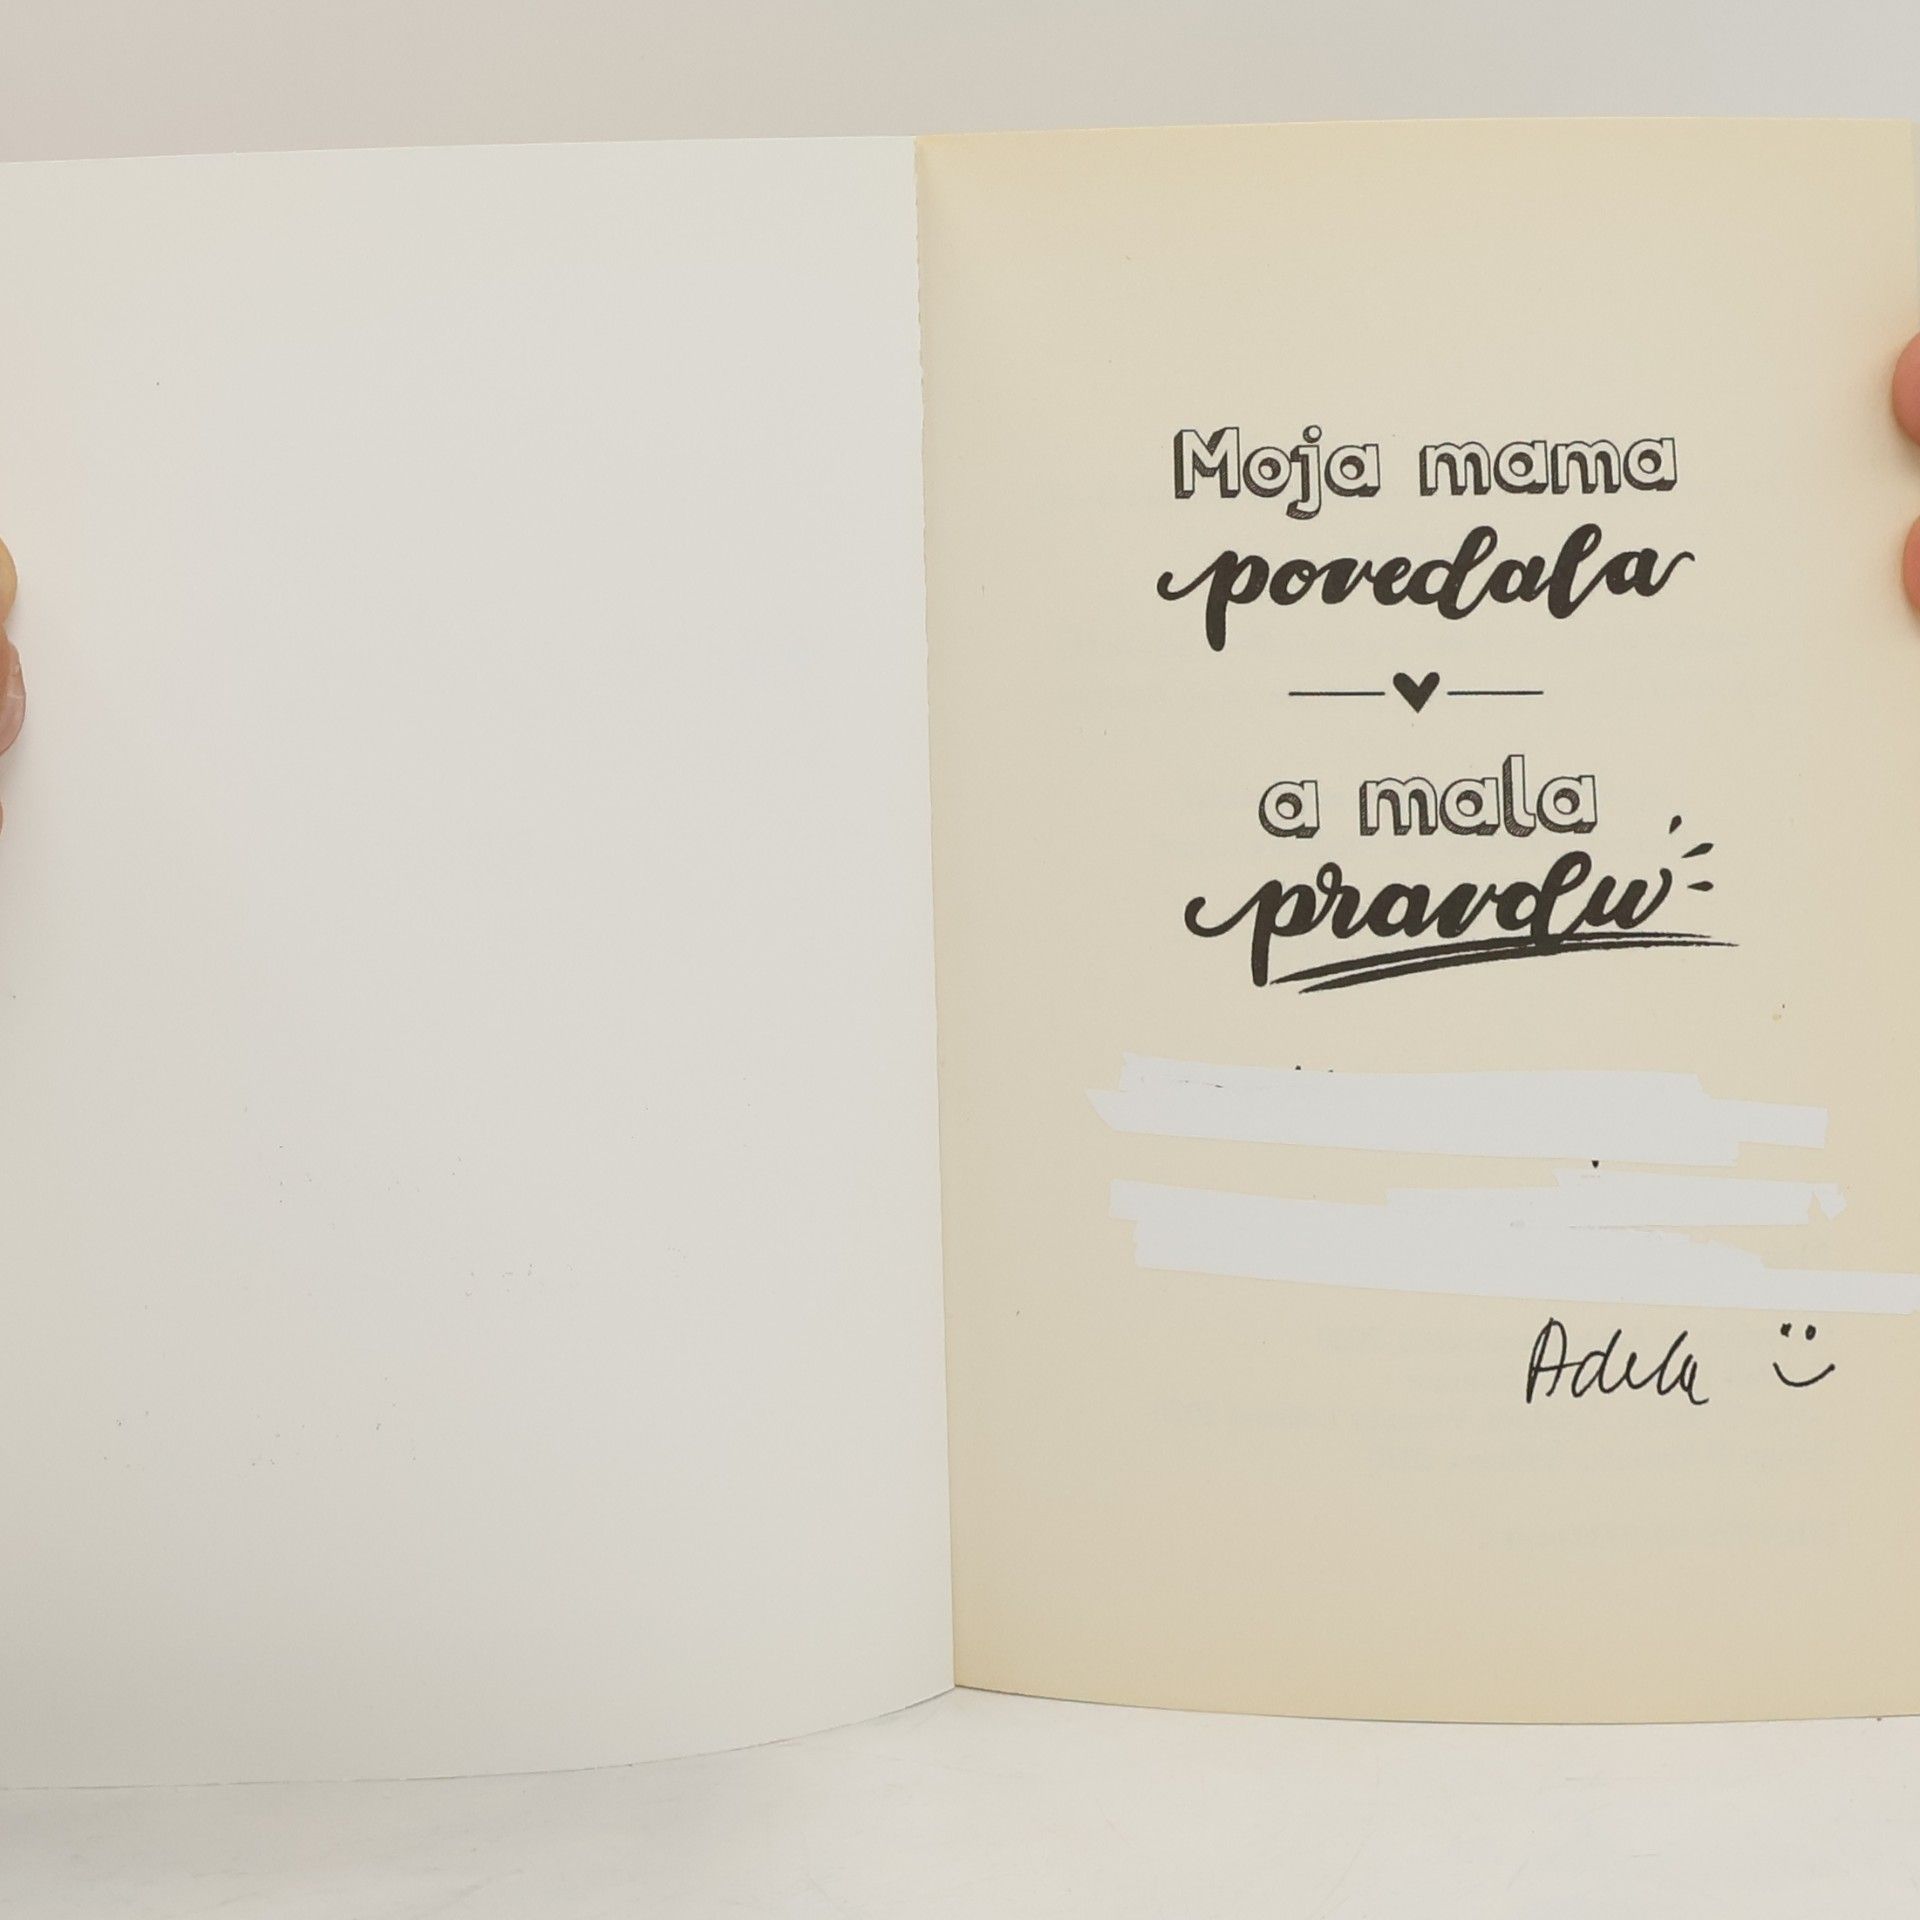 Moja mama
povedala
a mala
pravdu
Adela